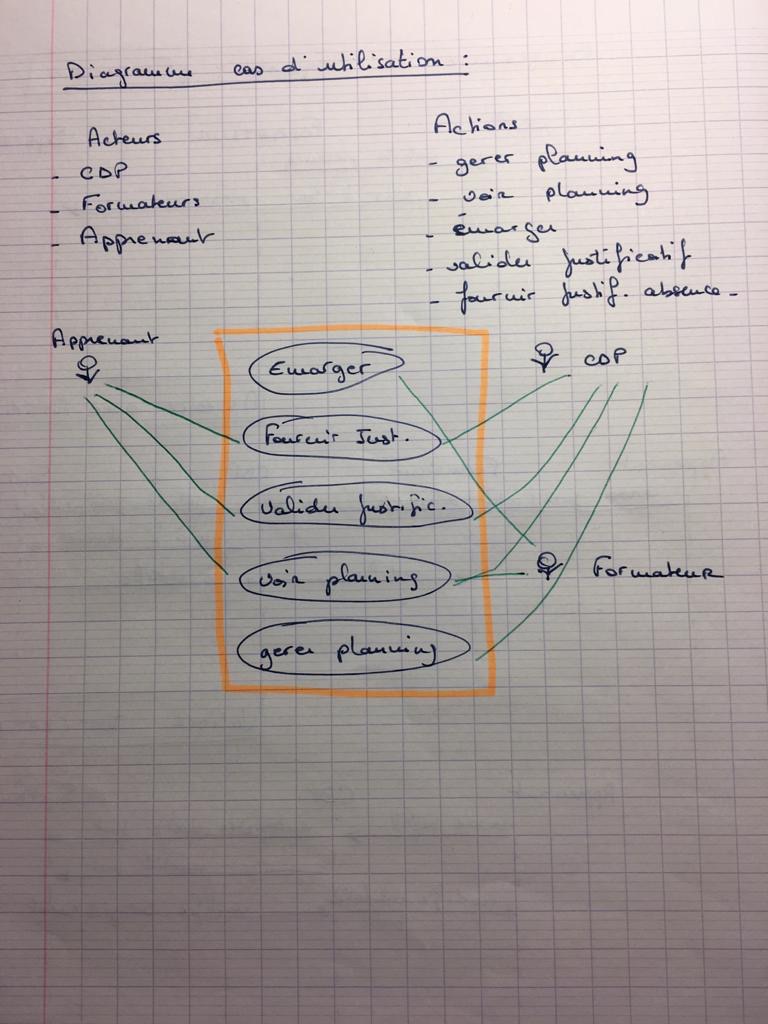 Diagramme cas d'utilisation :
Acteurs
- CDP
- Formateurs
- Apprenant
Actions
- gerer planning
- voir planning
- émarger
- valider justificatif
- fournir justif. absence -
Apprenant
CDP
Emarger
Fournir Just.
valider justific.
voir planning
Formateur
gerer planning